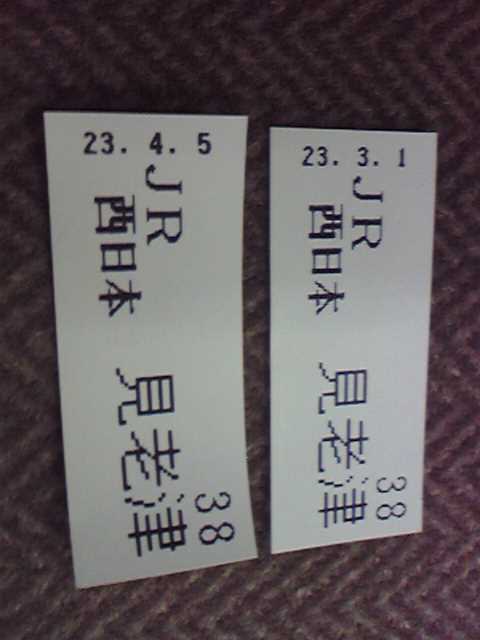 23. 4. 5
JR
西日本
見老津
38
23. 3. 1
JR
西日本
見老津
38